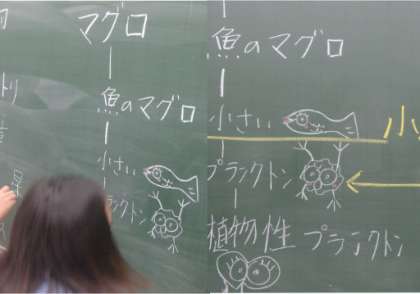 マグロ
魚のマグロ
小さい
ランクトン
魚のマグロ
小さい 小
プランクトン
植物性 プランクトン